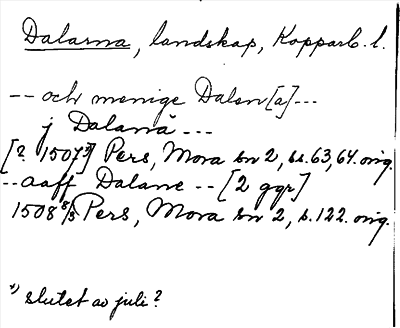 Dalarna, landskap, Kopparb. l.
-- och menige Dalen[a]---
j Dalanå ---
[? 1507¹⁾] Pers, Mora sn 2, ss. 63, 64. orig.
-- aaff Dalane -- [2 ggr]
1508 8/3 Pers, Mora sn 2, s. 122. orig.
¹⁾ slutet av juli?